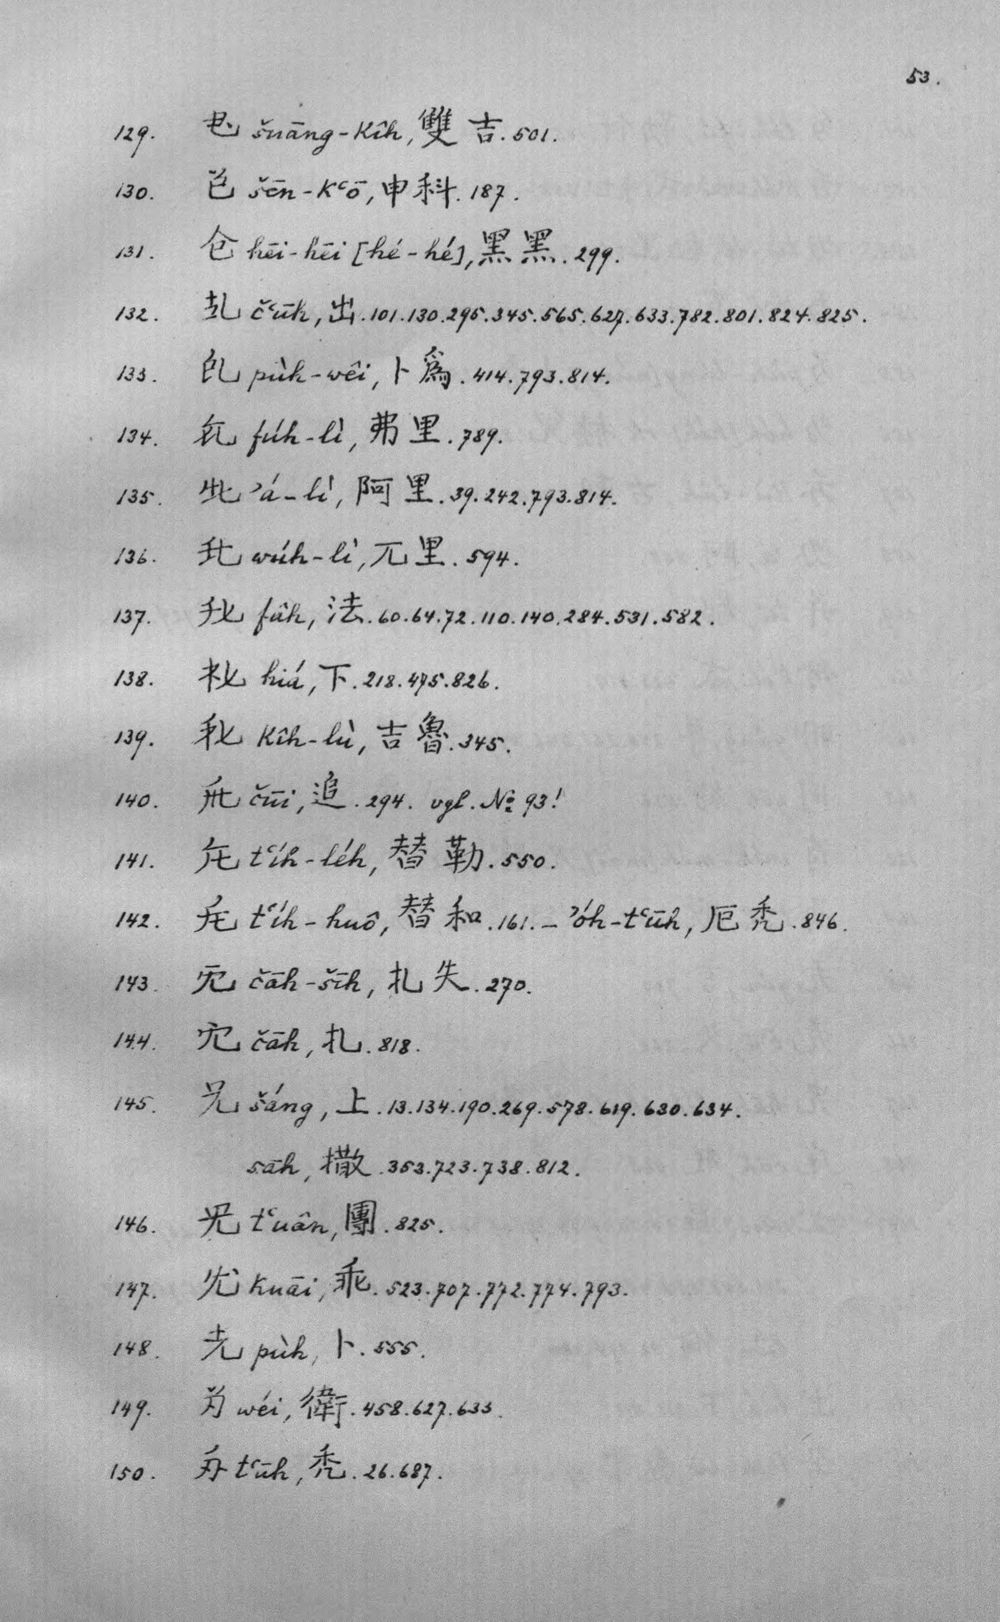 53.
129. šuāng-kîh, 雙吉. 501.
130. šēn-kʿō, 申科. 187.
131. hēi-hēi [hé-hé], 黑黑. 299.
132. čʿūh, 出. 101. 130. 295. 345. 565. 627. 633. 782. 801. 824. 825.
133. pùh-wêi, 卜爲. 414. 793. 814.
134. fúh-lì, 弗里. 789.
135. ʾá-lì, 阿里. 39. 242. 793. 814.
136. wúh-lì, 兀里. 594.
137. fâh, 法. 60. 64. 72. 110. 140. 284. 531. 582.
138. hiá, 下. 218. 475. 826.
139. kîh-lù, 吉魯. 345.
140. čūi, 追. 294. vgl. № 93!
141. tʿíh-léh, 替勒. 550.
142. tʿíh-huô, 替和. 161. – ʾóh-tʿūh, 厄禿. 846.
143. čāh-šīh, 扎失. 270.
144. čāh, 扎. 818.
145. šáng, 上. 13. 134. 190. 269. 578. 619. 630. 634.
sāh, 撒. 353. 723. 738. 812.
146. tʿuân, 團. 825.
147. kuāi, 乖. 523. 707. 772. 774. 793.
148. pùh, 卜. 555.
149. wéi, 衛. 458. 627. 633.
150. tʿūh, 禿. 26. 687.